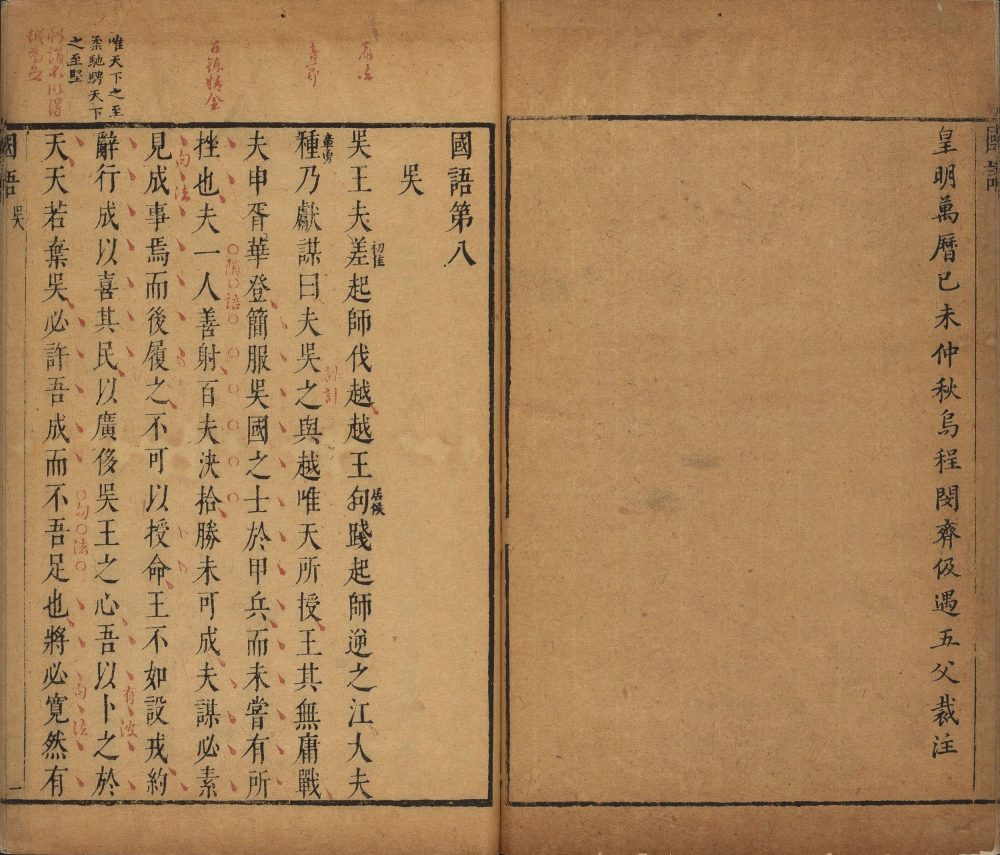 國語
皇明萬曆己未仲秋烏程閔齊伋遇五父裁注
國語第八
吳
吳王夫差起師伐越越王句踐起師逆之江大夫
種乃獻謀曰夫吳之與越唯天所授王其無庸戰
夫申胥華登簡服吳國之士於甲兵而未嘗有所
挫也夫一人善射百夫決拾勝未可成夫謀必素
見成事焉而後履之不可以授命王不如設戎約
辭行成以喜其民以廣侈吳王之心吾以卜之於
天天若棄吳必許吾成而不吾足也將必寬然有
國語 吳 一
初隹
居候
章勇
唯天下之至
柔馳騁天下
之至堅
章節
百鍊精金
句法
句法
句法
有波